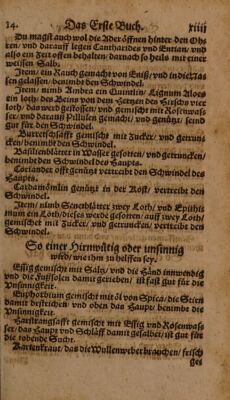 14. Das Erste Buch. xiiij
Du magst auch wol die Ader öffnen hinder den Oh-
ren/ und darauff legen Cantharides und Entian/ und
also ein Zeit offen behalten/ darnach so heils mit einer
weissen Salb.
Item/ ein Rauch gemacht von Eniß/ und in die Nas
sen gelassen/ benimbt den Schwindel.
Item/ nimb Ambra ein Quintlin/ Lignum Aloes
ein loth/ des Beins von dem Hertzen des Hirschs vier
loth/ das werd gestossen/ und gemischt mit Rosenwas
ser/ und daraus Pillulen gemacht/ und genützt/ send
gut für den Schwindel.
Burretschsafft gemischt mit Zucker/ und getrunc-
ken/ benimbt den Schwindel.
Basilienblätter in Wasser gesotten/ und getruncken/
benimbt den Schwindel des Haupts.
Coriander offt genützt vertreibt den Schwindel des
Haupts.
Cardamömlin genützt in der Kost/ vertreibt den
Schwindel.
Item/ nimb Senetblätter zwey Loth/ und Epithi-
mum ein Loth/ dieses werde gesotten/ auff zwey Loth/
gemischt mit Zucker/ und getruncken/ vertreibt den
Schwindel.
So einer Hirnwütig oder unsinnig
wird/ wie ihm zu helffen sey.
Essig gemischt mit Saltz/ und die Händ innwendig
und die Fußsolen damit gerieben/ ist fast gut für die
Unsinnigkeit.
Euphorbium gemischt mit öl von Spica/ die Stirn
damit bestrichen/ und oben das Haupt/ benimbt die
Unsinnigkeit.
Harstrangsafft gemischt mit Essig und Rosenwas
ser/ das Haupt und Schläff damit gesalbet/ ist gut für
die tobende Sucht.
Kartenkraut/ das die Wullenweber brauchen/ frisch
ges